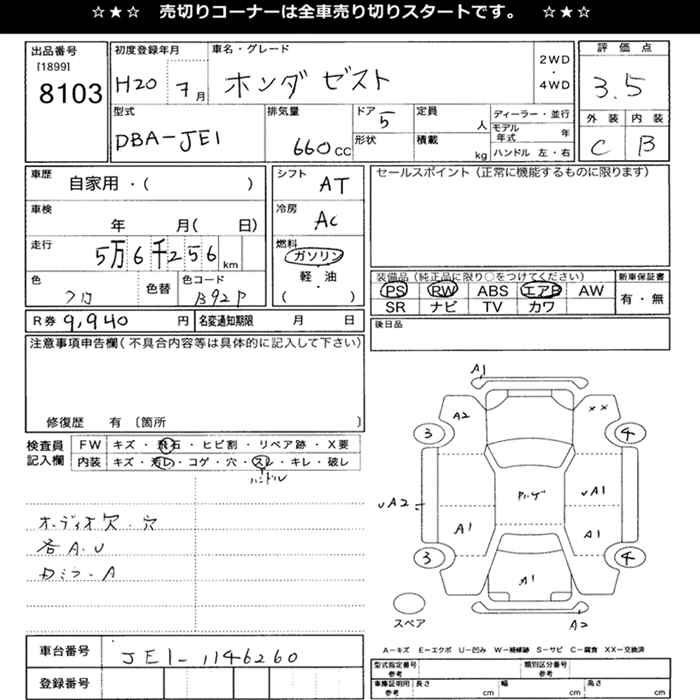 ☆★☆ 売切りコーナーは全車売り切りスタートです。 ☆★☆
出品番号
[1899]
8103
初度登録年月
H20 7月
車名・グレード
ホンダ ゼスト
2WD
・
4WD
評価点
3.5
外装 内装
C B
型式
DBA-JE1
排気量
660cc
ドア
5
形状
定員
人
積載
kg
ディーラー・並行
モデル年式 年
ハンドル 左・右
車歴
自家用・( )
車検
年 月( 日)
走行
5万6千256km
色
クロ
色替
色コード
B92P
シフト
AT
冷房
AC
燃料
ガソリン
軽・油
( )
セールスポイント(正常に機能するものに限ります)
装備品(純正品に限り○をつけてください)
PS RW ABS エアB AW
SR ナビ TV カワ
新車保証書
有・無
後日品
R券 9,940円
名変通知期限 月 日
注意事項申告欄(不具合内容等は具体的に記入して下さい)
修復歴 有 〔箇所 〕
検査員
記入欄
FW キズ・飛石・ヒビ割・リペア跡・X要
内装 キズ・汚レ・コゲ・穴・スレ・キレ・破レ
ハンドル
オーディオ欠・穴
各A・U
A1
A2
××
3
4
UA2
UA1
A1
A1
3
4
A1
A2
スペア
A-キズ E-エクボ U-凹み W-補修跡 S-サビ C-腐食 XX-交換済
車台番号
JE1-1146260
登録番号
型式指定番号
参考
類別区分番号
参考
車庫証明用
参考
長さ cm
幅 cm
高さ cm